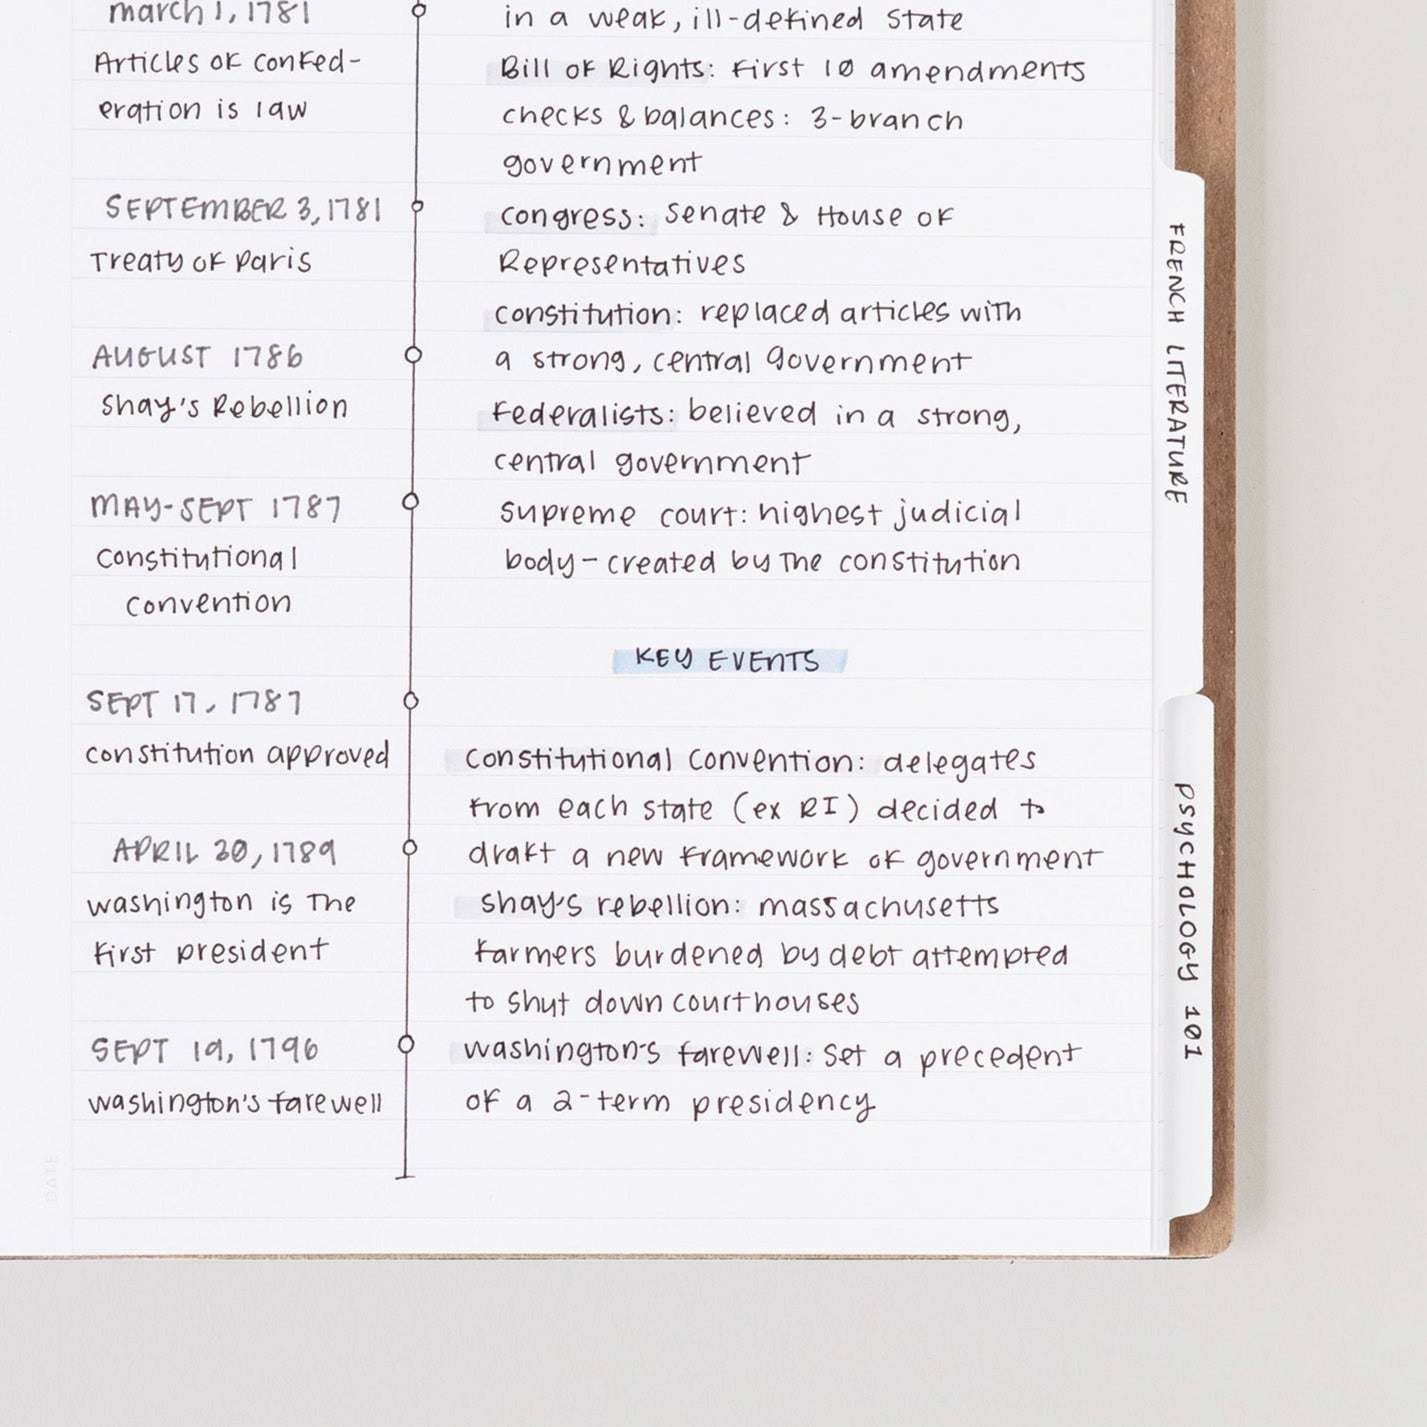 March 1, 1781
Articles of Confed-
eration is law
SEPTEMBER 3, 1781
Treaty of Paris
AUGUST 1786
Shay's Rebellion
MAY-SEPT 1787
Constitutional
Convention
SEPT 17, 1787
Constitution approved
APRIL 30, 1789
Washington is the
first president
SEPT 19, 1796
Washington's farewell
in a weak, ill-defined state
Bill of Rights: First 10 amendments
checks & balances: 3-branch
government
Congress: Senate & House of
Representatives
Constitution: replaced articles with
a strong, central government
Federalists: believed in a strong,
central government
Supreme court: highest judicial
body - created by the constitution
KEY EVENTS
Constitutional Convention: delegates
from each state (ex RI) decided to
draft a new framework of government
Shay's rebellion: Massachusetts
farmers burdened by debt attempted
to shut down courthouses
Washington's farewell: Set a precedent
of a 2-term presidency
FRENCH LITERATURE
PSYCHOLOGY 101
DATE